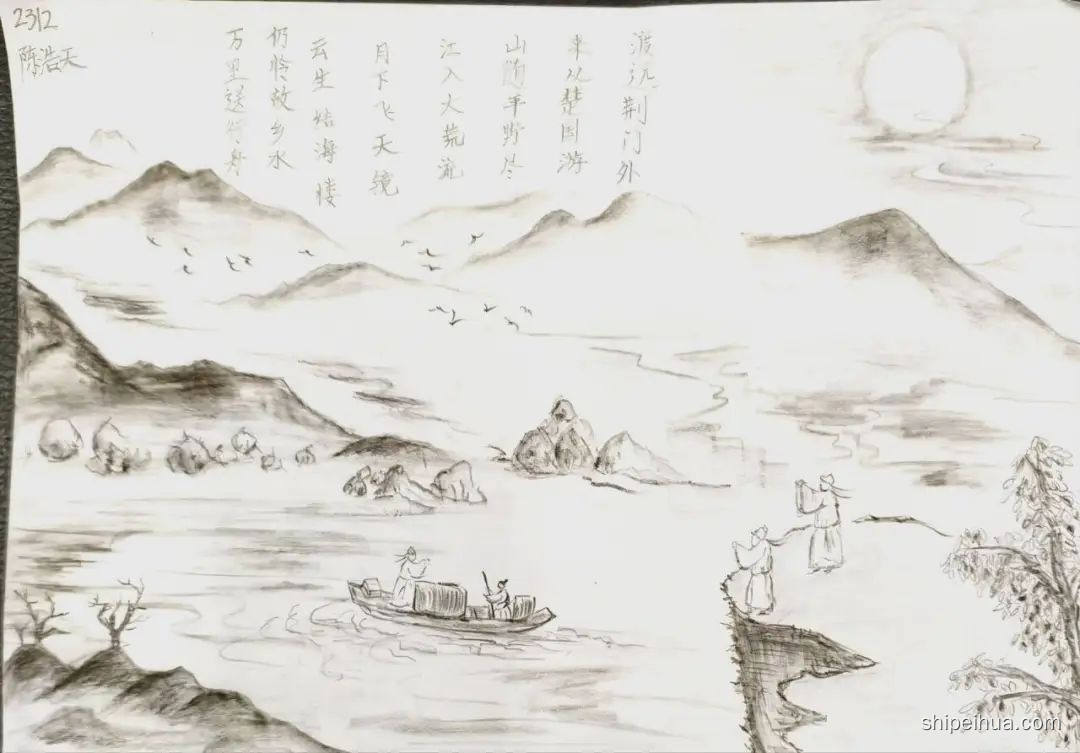 2312
陈浩天
渡远荆门外
来从楚国游
山随平野尽
江入大荒流
月下飞天镜
云生结海楼
仍怜故乡水
万里送行舟
shipeihua.com